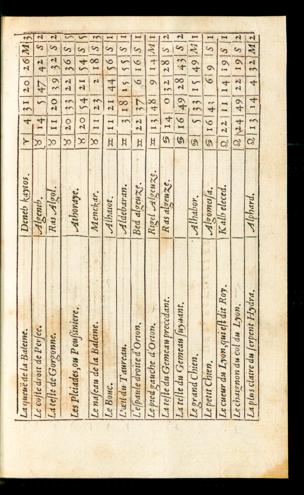 La queuë de la Baleine. Deneb kaytos. ♈ 4 31 20 26 M 3
Le coste droit de Persee. Algeneb. ♉ 14 5 47 S 2
La teste de Gorgonne. Ras Algol. ♉ 11 20 39 S 2
Les Pleiades, ou Poussiniere. Athoraye. ♉ 20 33 22 36 S 5
♉ 20 54 21 54 S 5
Le naseau de la Baleine. Menckar. ♉ 11 23 2 18 S 3
Le Bouc. Alhaiot. ♊ 11 21 44 56 S 1
L'œil du Taureau. Aldebaran. ♊ 3 18 15 55 S 1
L'espaule droite d'Orion. Bied algeuze. ♊ 22 27 6 16 S 1
Le pied gauche d'Orion. Rigel Algeuze. ♊ 13 48 9 14 M 1
La teste du Gemeau precedant. Ras algeuze. ♋ 14 0 32 28 S 2
La teste du Gemeau suyvant. ♋ 16 49 28 43 S 2
Le grand Chien. Alhabor. ♋ 5 33 15 49 M 1
Le petit Chien. Algomeisa. ♋ 16 43 6 9 S 1
Le cueur du Lyon, qui est dit Roy. Kalb eleced. ♌ 22 11 14 19 S 1
Le chaignon du col du Lyon. ♌ 24 49 22 19 S 2
La plus claire du serpent Hydra. Alphard. ♌ 13 14 4 32 M 2